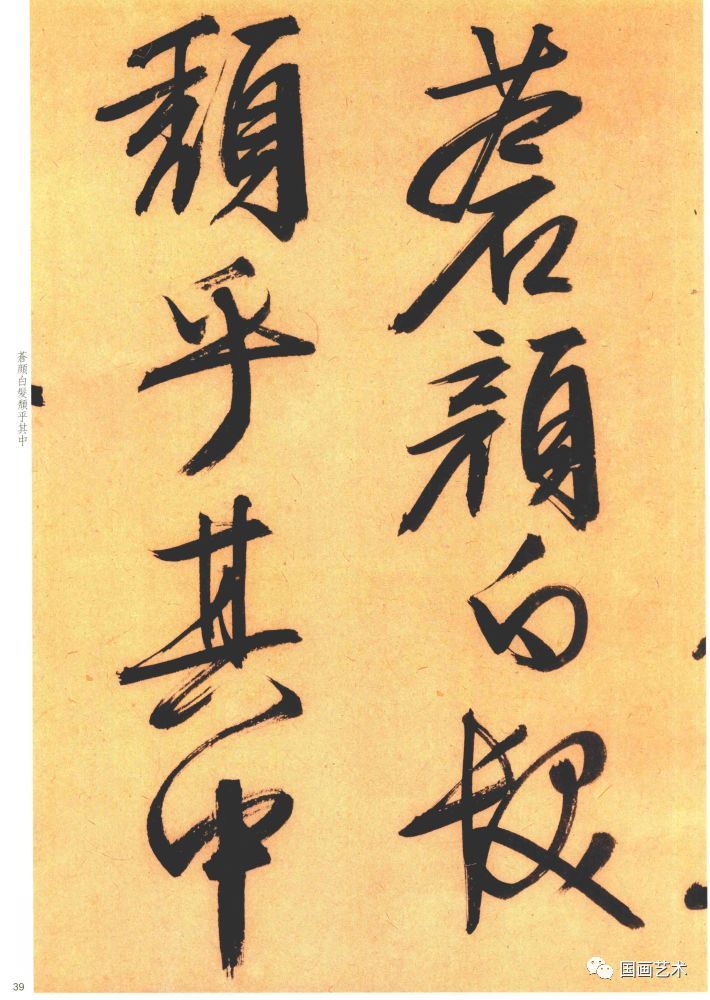 蒼顔白髮
頹乎其中
蒼顔白髮頹乎其中
39
国画艺术